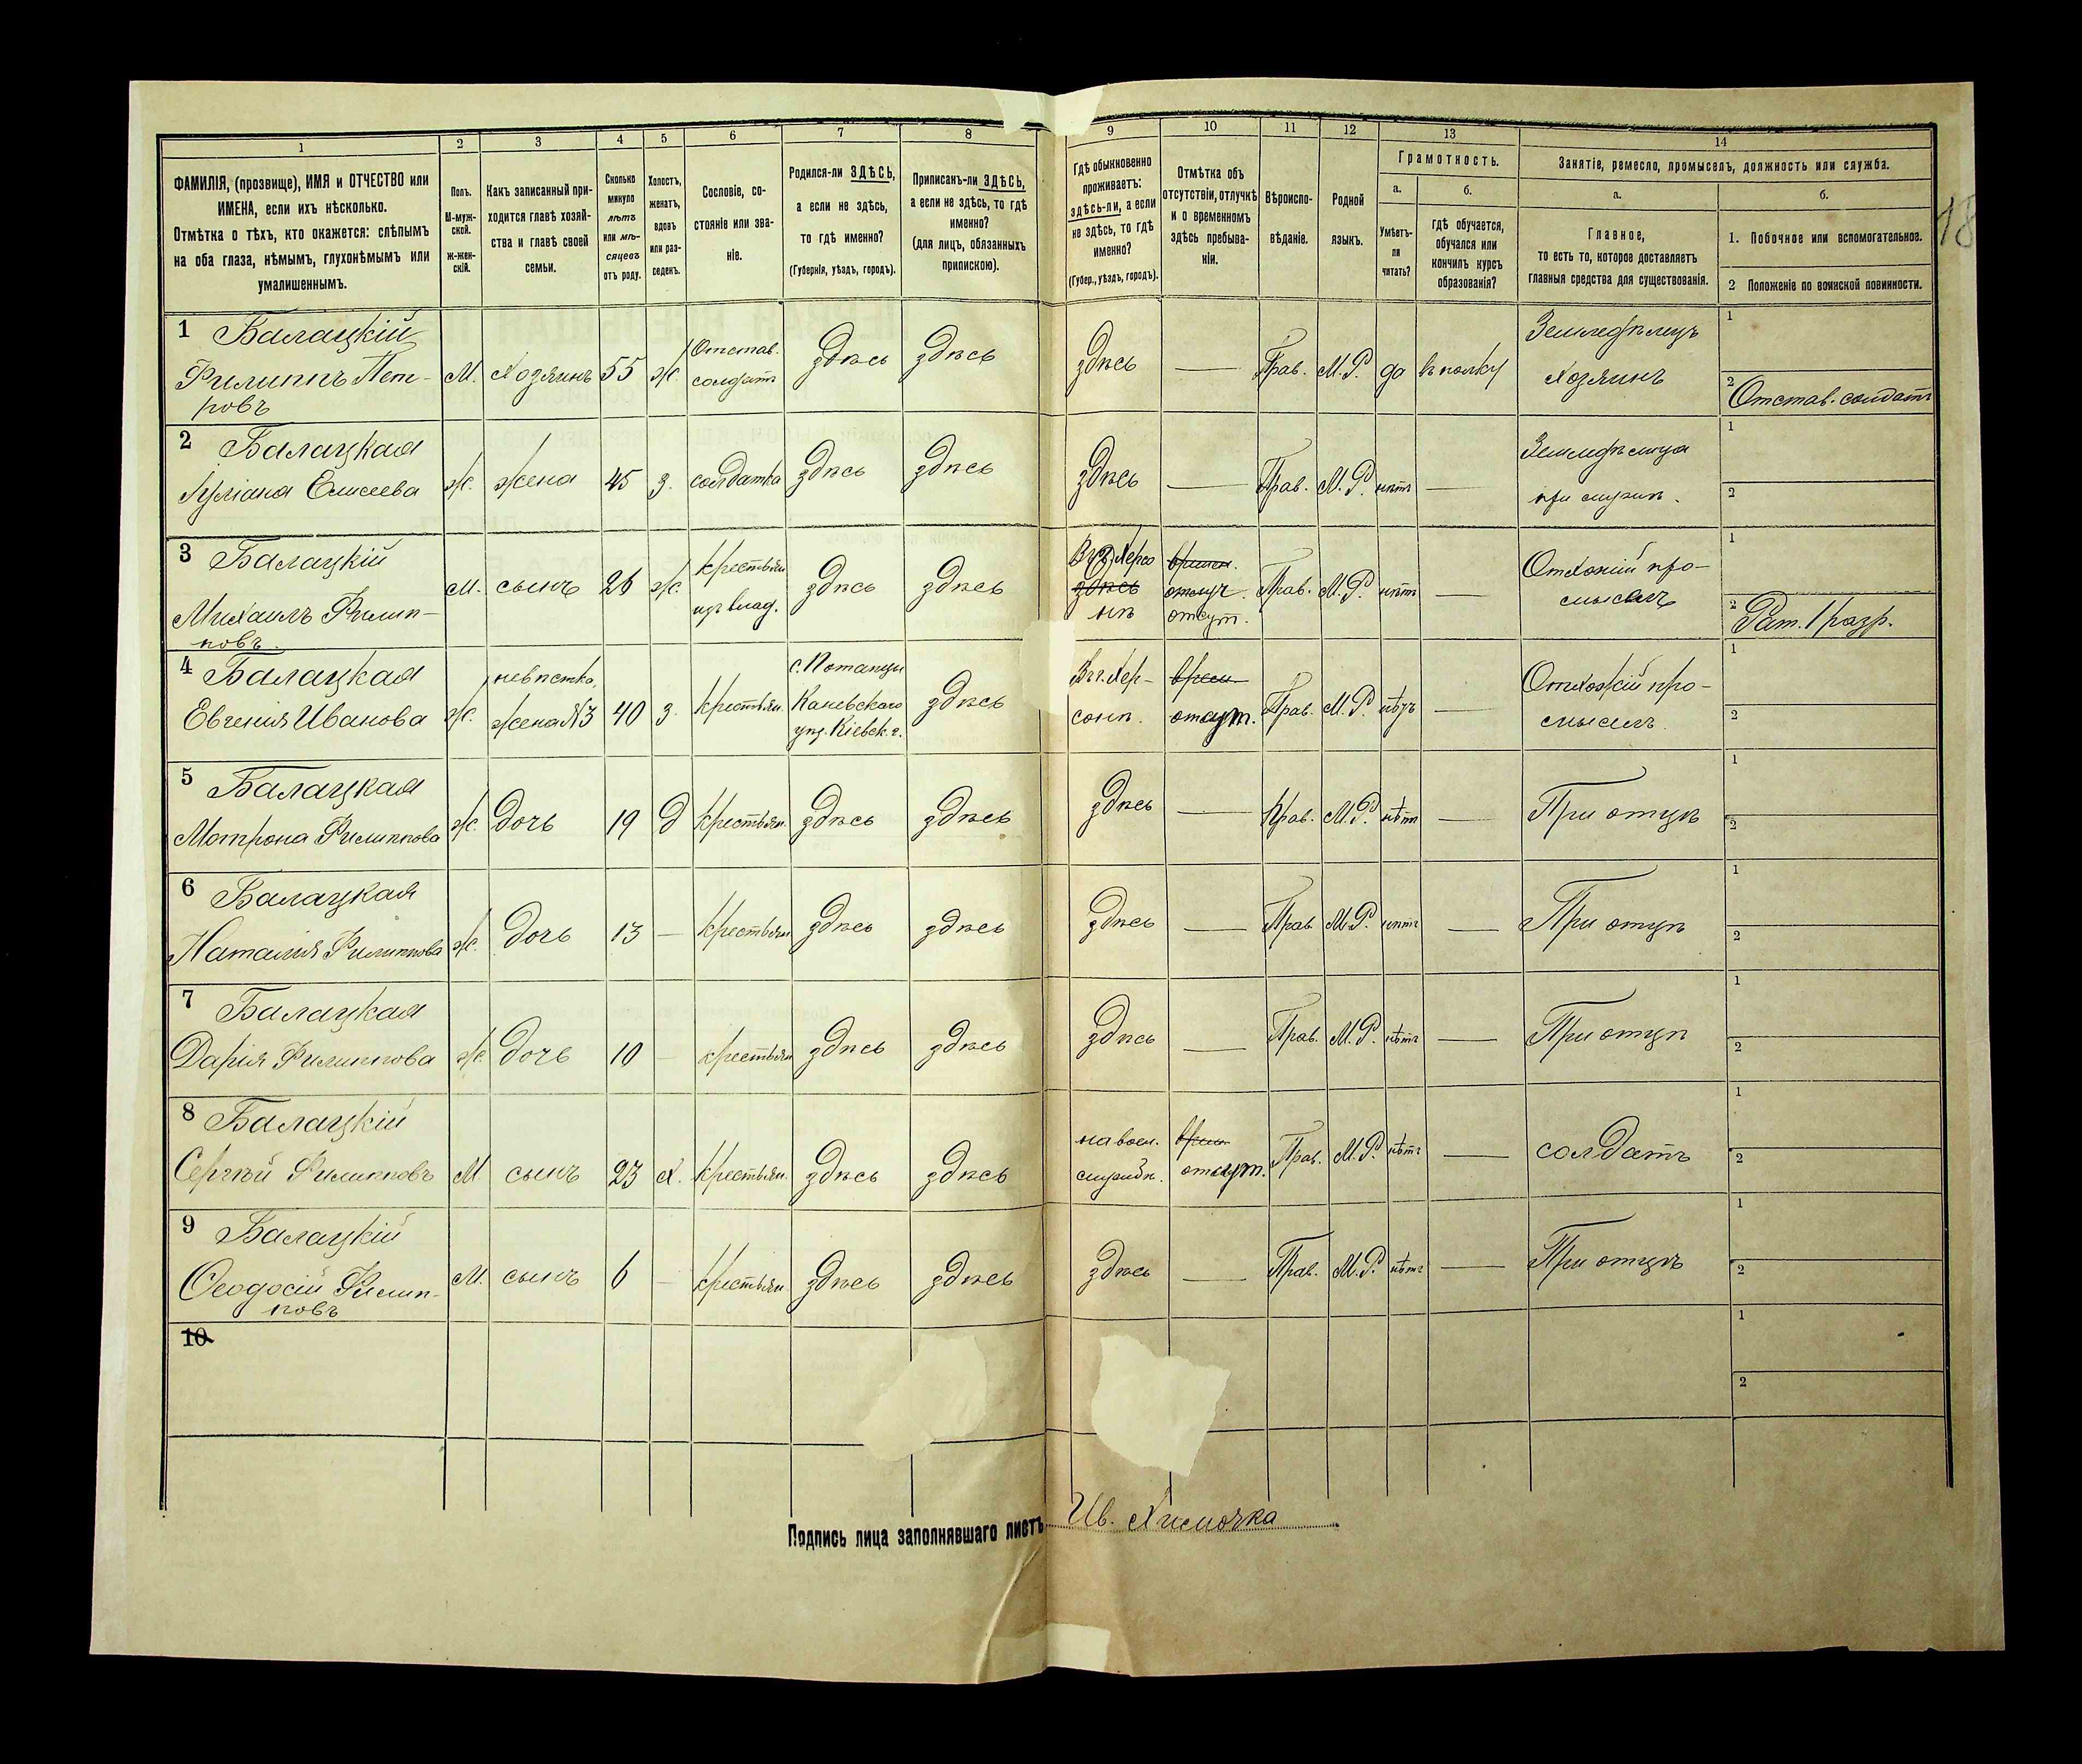 18
1
2
3
4
5
6
7
8
9
10
11
12
13
14
ФАМИЛІЯ, (прозвище), ИМЯ и ОТЧЕСТВО или
ИМЕНА, если ихъ нѣсколько.
Отмѣтка о тѣхъ, кто окажется: слѣпымъ
на оба глаза, нѣмымъ, глухонѣмымъ или
умалишеннымъ.
Полъ.
М-муж-
ской.
Ж-жен-
скій.
Какъ записанный при-
ходится главѣ хозяй-
ства и главѣ своей
семьи.
Сколько
минуло
лѣтъ
или мѣ-
сяцевъ
отъ роду.
Холостъ,
женатъ,
вдовъ
или раз-
веденъ.
Сословіе, со-
стояніе или зва-
ніе.
Родился-ли ЗДѢСЬ,
а если не здѣсь,
то гдѣ именно?
(Губернія, уѣздъ, городъ).
Приписанъ-ли ЗДѢСЬ,
а если не здѣсь, то гдѣ
именно?
(для лицъ, обязанныхъ
припискою).
Гдѣ обыкновенно
проживаетъ:
здѣсь-ли, а если
не здѣсь, то гдѣ
именно?
(Губер., уѣздъ, городъ).
Отмѣтка объ
отсутствіи, отлучкѣ
и о временномъ
здѣсь пребыва-
ніи.
Вѣроиспо-
вѣданіе.
Родной
языкъ.
Грамотность.
а.
Умѣетъ-
ли
читать?
б.
гдѣ обучается,
обучался или
кончилъ курсъ
образованія?
Занятіе, ремесло, промыселъ, должность или служба.
а.
Главное,
то есть то, которое доставляетъ
главныя средства для существованія.
б.
1. Побочное или вспомогательное.
2 Положеніе по воинской повинности.
1 Балацкій
Филиппъ Пет-
ровъ
М. Хозяинъ 55 Ж. Отстав.
солдатъ
здѣсь здѣсь здѣсь — Прав. М.Р. да въ полку
Земледѣлецъ
Хозяинъ
1
2 Отстав. солдатъ
2 Балацкая
Іуліана Елисеева
Ж. жена 45 З. солдатка здѣсь здѣсь здѣсь — Прав. М.Р. нѣтъ —
Земледѣлица
при мужѣ.
1
2
3 Балацкій
Михаилъ Филип-
повъ.
М. сынъ 26 Ж. крестьян.
изъ влад.
здѣсь здѣсь
Въ г. Херсо
здѣсь
нѣ
времен.
отлуч.
отсут.
Прав. М.Р. нѣтъ —
Отхожій про-
мыселъ
1
2 Рат. 1 разр.
4 Балацкая
Евгенія Иванова
Ж. невѣстка,
жена №3
40 З. крестьян.
с. Потапцы
Каневскаго
уѣз. Кіевск. г.
здѣсь
Въ г. Хер-
сонѣ.
врем.
отсут.
Прав. М.Р. нѣтъ —
Отхожій про-
мыселъ.
1
2
5 Балацкая
Мотрона Филиппова
Ж. дочь 19 Д крестьян. здѣсь здѣсь здѣсь — Прав. М.Р. нѣтъ — При отцѣ
1
2
6 Балацкая
Наталія Филиппова
Ж. дочь 13 — крестьян. здѣсь здѣсь здѣсь — Прав. М.Р. нѣтъ — При отцѣ
1
2
7 Балацкая
Дарія Филиппова
Ж. дочь 10 — крестьян. здѣсь здѣсь здѣсь — Прав. М.Р. нѣтъ — При отцѣ
1
2
8 Балацкій
Сергѣй Филипповъ
М. сынъ 23 Х. крестьян. здѣсь здѣсь
на воен.
службѣ.
врем.
отсут.
Прав. М.Р. нѣтъ — солдатъ
1
2
9 Балацкій
Ѳеодосій Филип-
повъ
М. сынъ 6 — крестьян. здѣсь здѣсь здѣсь — Прав. М.Р. нѣтъ — При отцѣ
1
2
10
1
2
Подпись лица заполнявшаго листъ Ив. Химочка